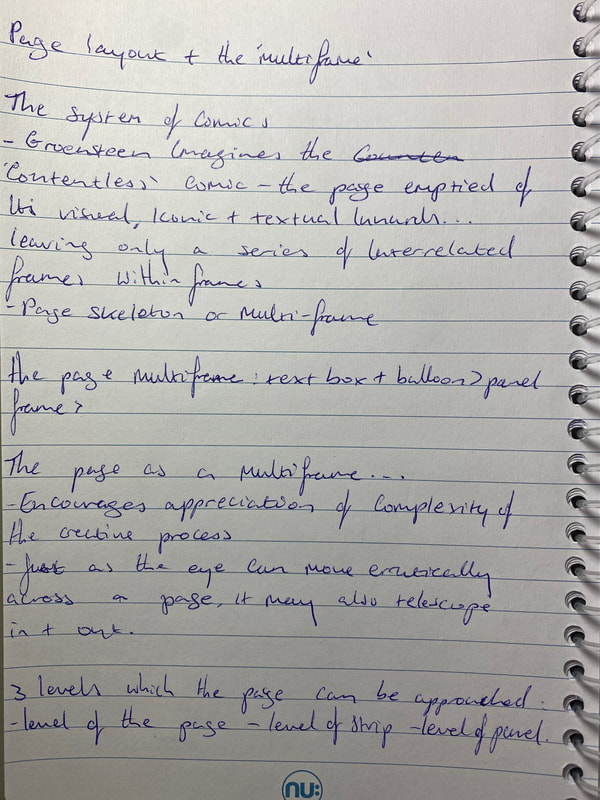 Page layout + the 'multiframe'
The system of comics
- Groensteen imagines the Counten
'Contentless' comic - the page emptied of
its visual, iconic + textual innards...
leaving only a series of interrelated
frames within frames
- Page skeleton or multi-frame
the page multiframe: text box + balloon > panel
frame >
The page as a multiframe...
- Encourages appreciation of complexity of
the creative process
- Just as the eye can move erratically
across a page, it may also telescope
in + out.
3 levels which the page can be approached.
- level of the page - level of strip - level of panel.
nu: